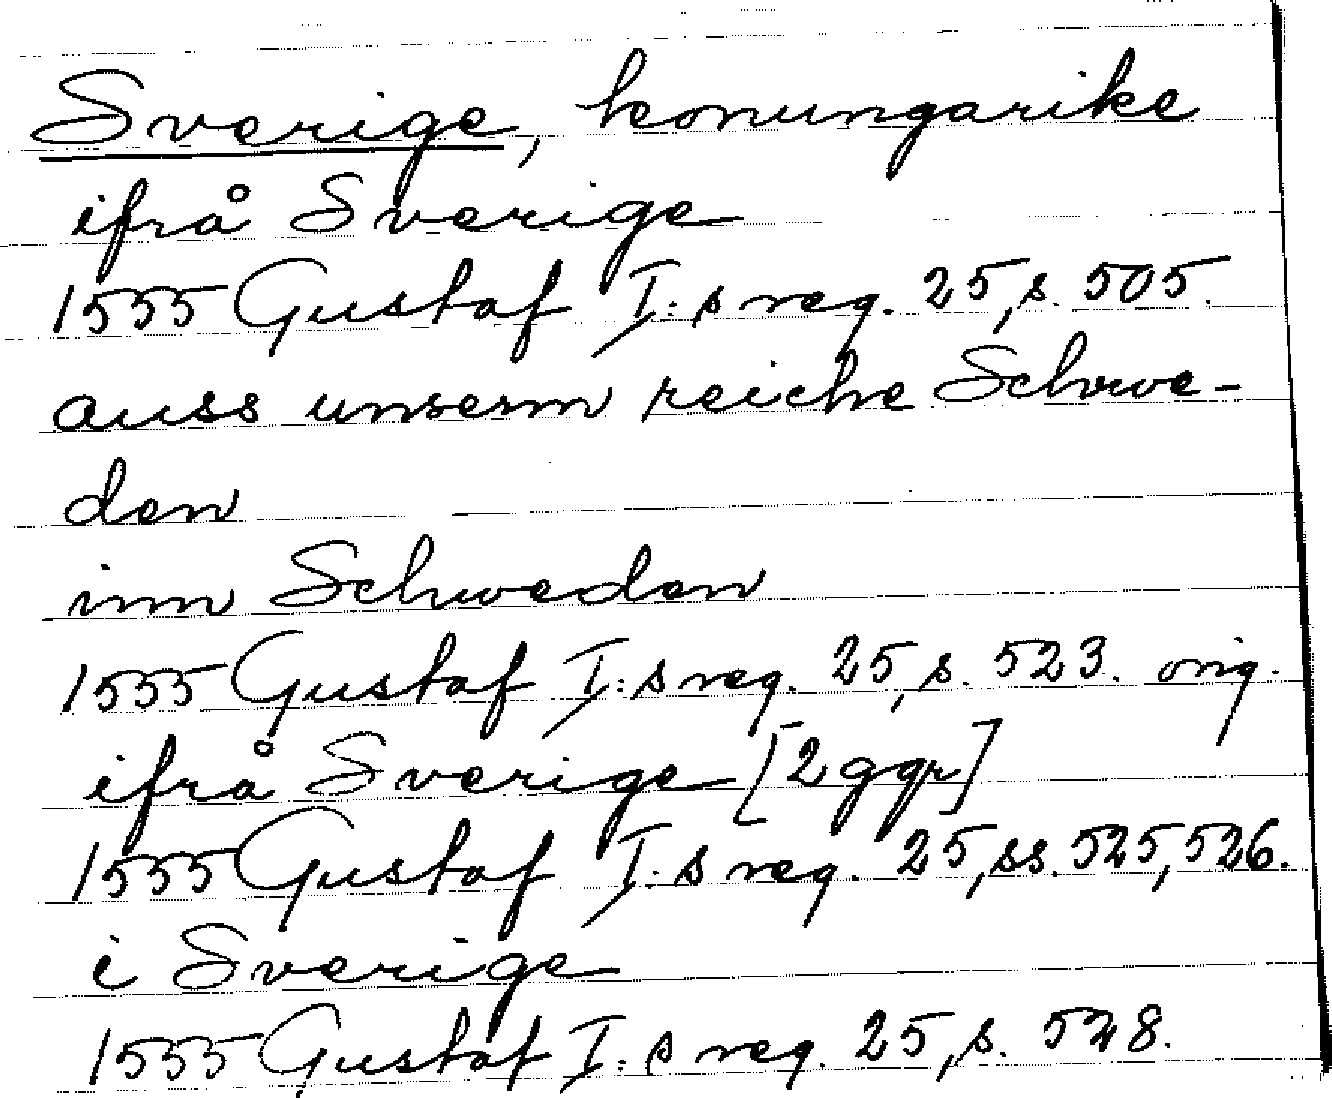 Sverige, konungarike
ifrå Sverige
1555 Gustaf I:s reg. 25, s. 505.
auss unserm reiche Schwe-
den
inn Schweden
1555 Gustaf I:s reg. 25, s. 523. orig.
ifrå Sverige [2 ggr]
1555 Gustaf I:s reg. 25, ss. 525, 526.
i Sverige
1555 Gustaf I:s reg. 25, s.